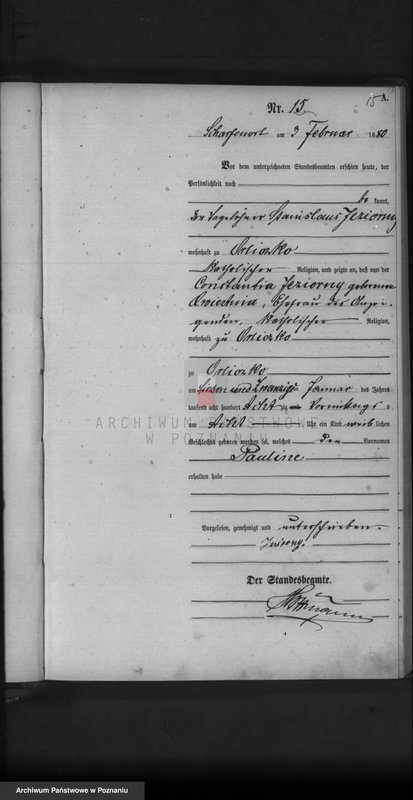 15 A.
Nr. 15
Scharfenort am 3 Februar 1880
Vor dem unterzeichneten Standesbeamten erschien heute, der
Persönlichkeit nach
be kannt,
der Tagelöhner Stanislaus Jeziorny
wohnhaft zu Orliczko
katholischer Religion, und zeigte an, daß von der
Constantia Jeziorny geborenen
Kwietnia, Ehefrau des Anzei-
genden, katholischer Religion,
wohnhaft zu Orliczko
zu Orliczko
am Sieben und Zwanzigs Januar des Jahres
tausend acht hundert Acht zig Vormittags
um Acht Uhr ein Kind weib lichen
Geschlechts geboren worden sei, welches den Vornamen
Pauline
erhalten habe
Vorgelesen, genehmigt und unterschrieben.
Jeziorny.
Der Standesbeamte.
ARCHIWUM PAŃSTWOWE
W POZNANIU
Archiwum Państwowe w Poznaniu